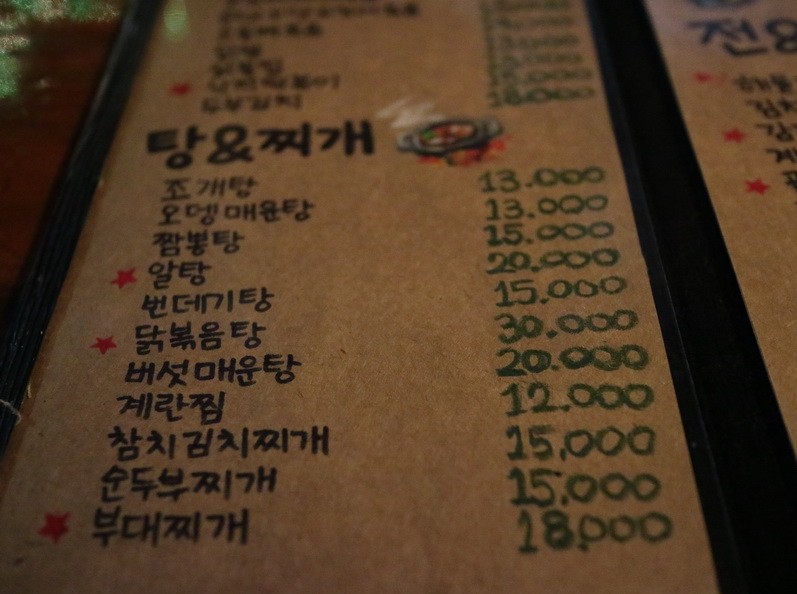 낙지떡볶이
두부김치 18,000
탕&찌개
조개탕 13.000
오뎅매운탕 13.000
짬뽕탕 15.000
알탕 20.000
번데기탕 15.000
닭볶음탕 30.000
버섯매운탕 20.000
계란찜 12.000
참치김치찌개 15,000
순두부찌개 15,000
부대찌개 18,000
전&
김치